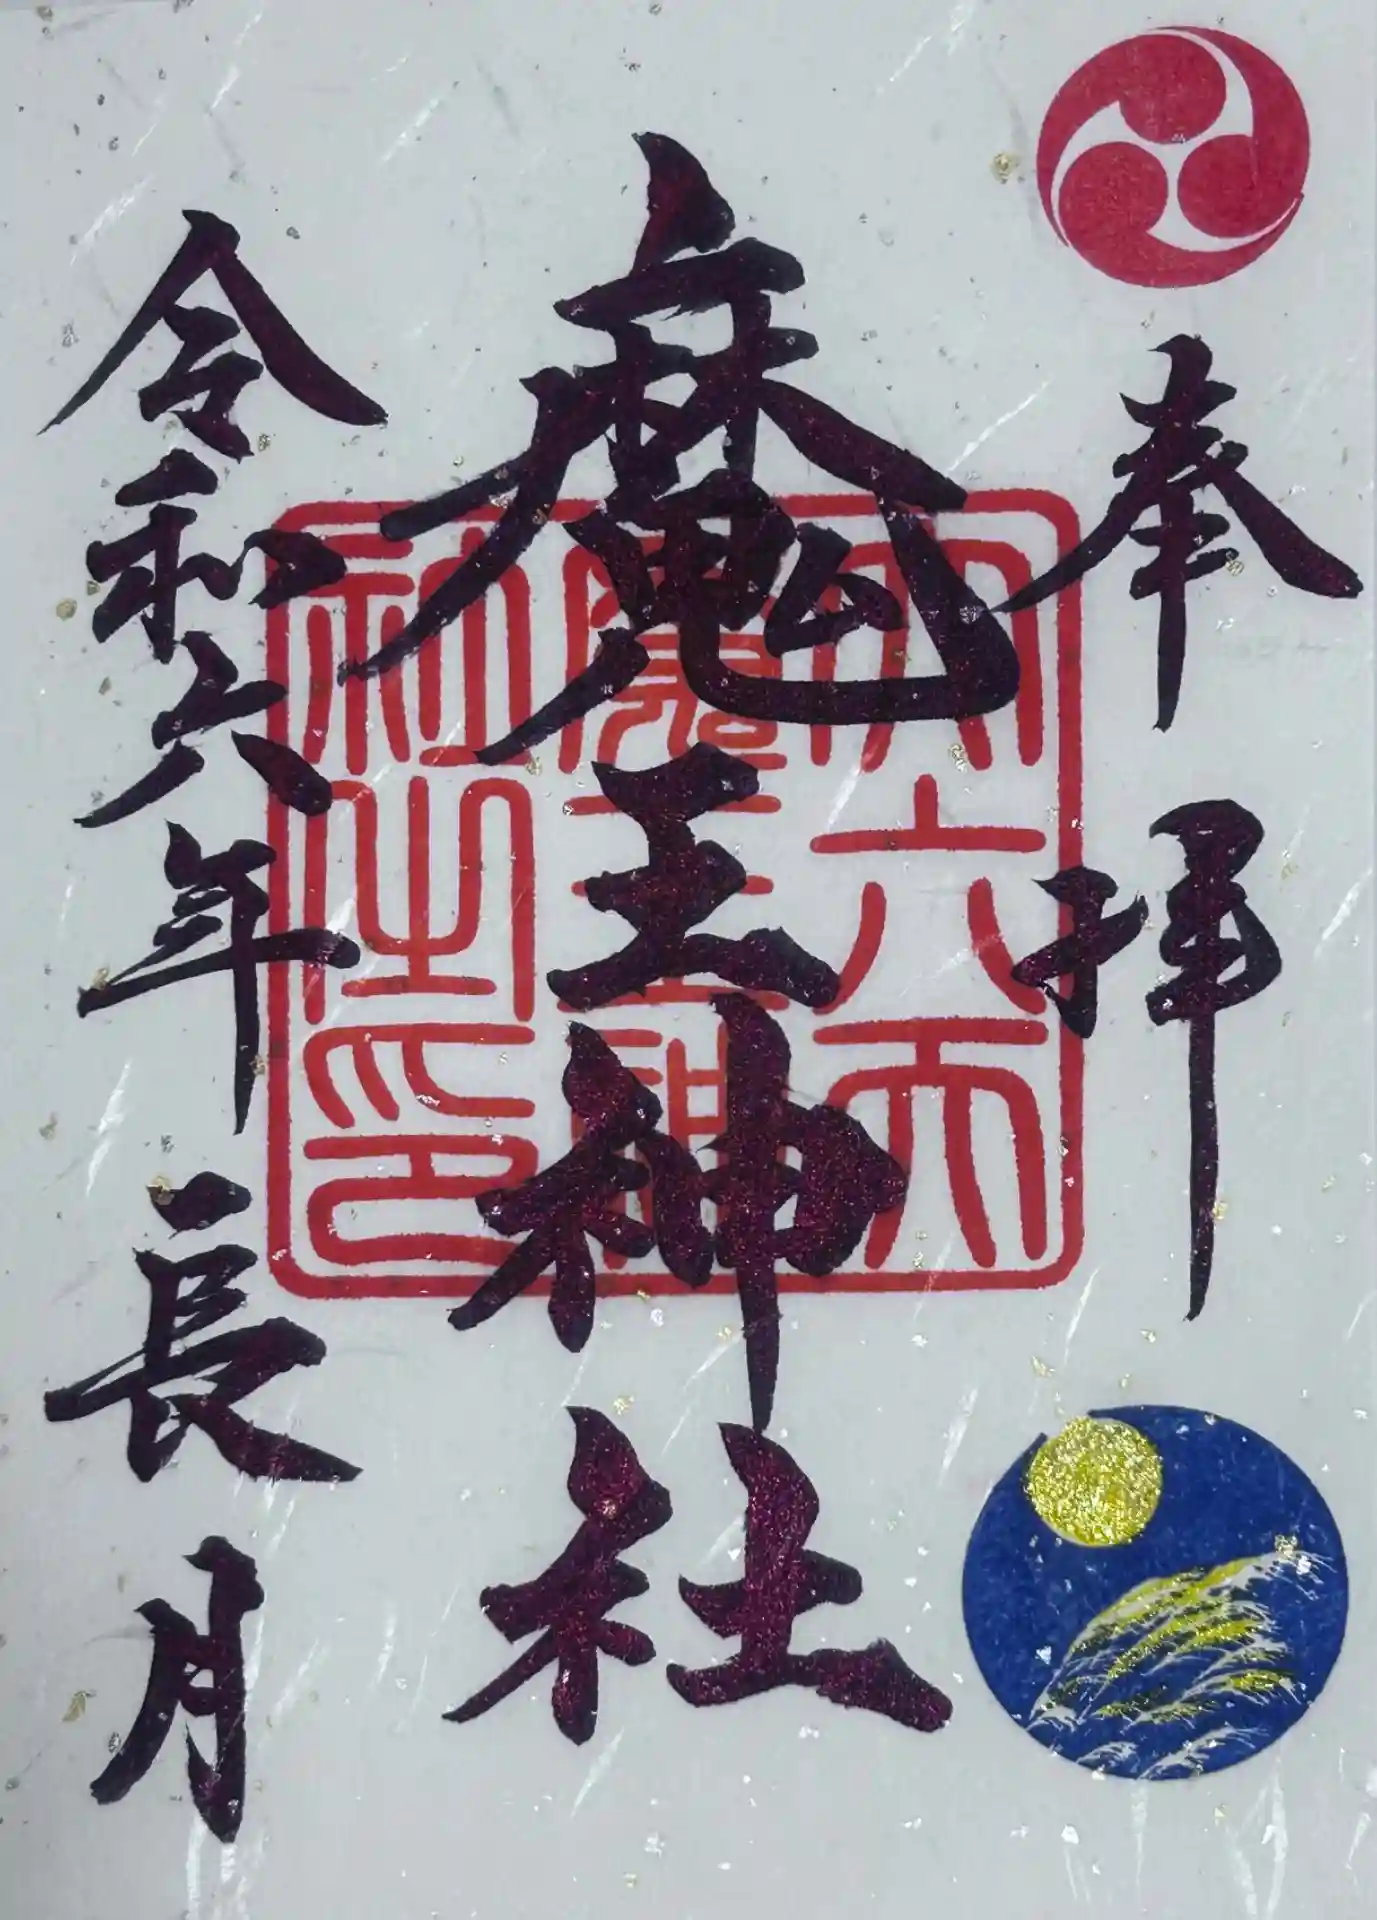 奉拝
魔王神社
第六天
魔王神
社之印
令和六年長月